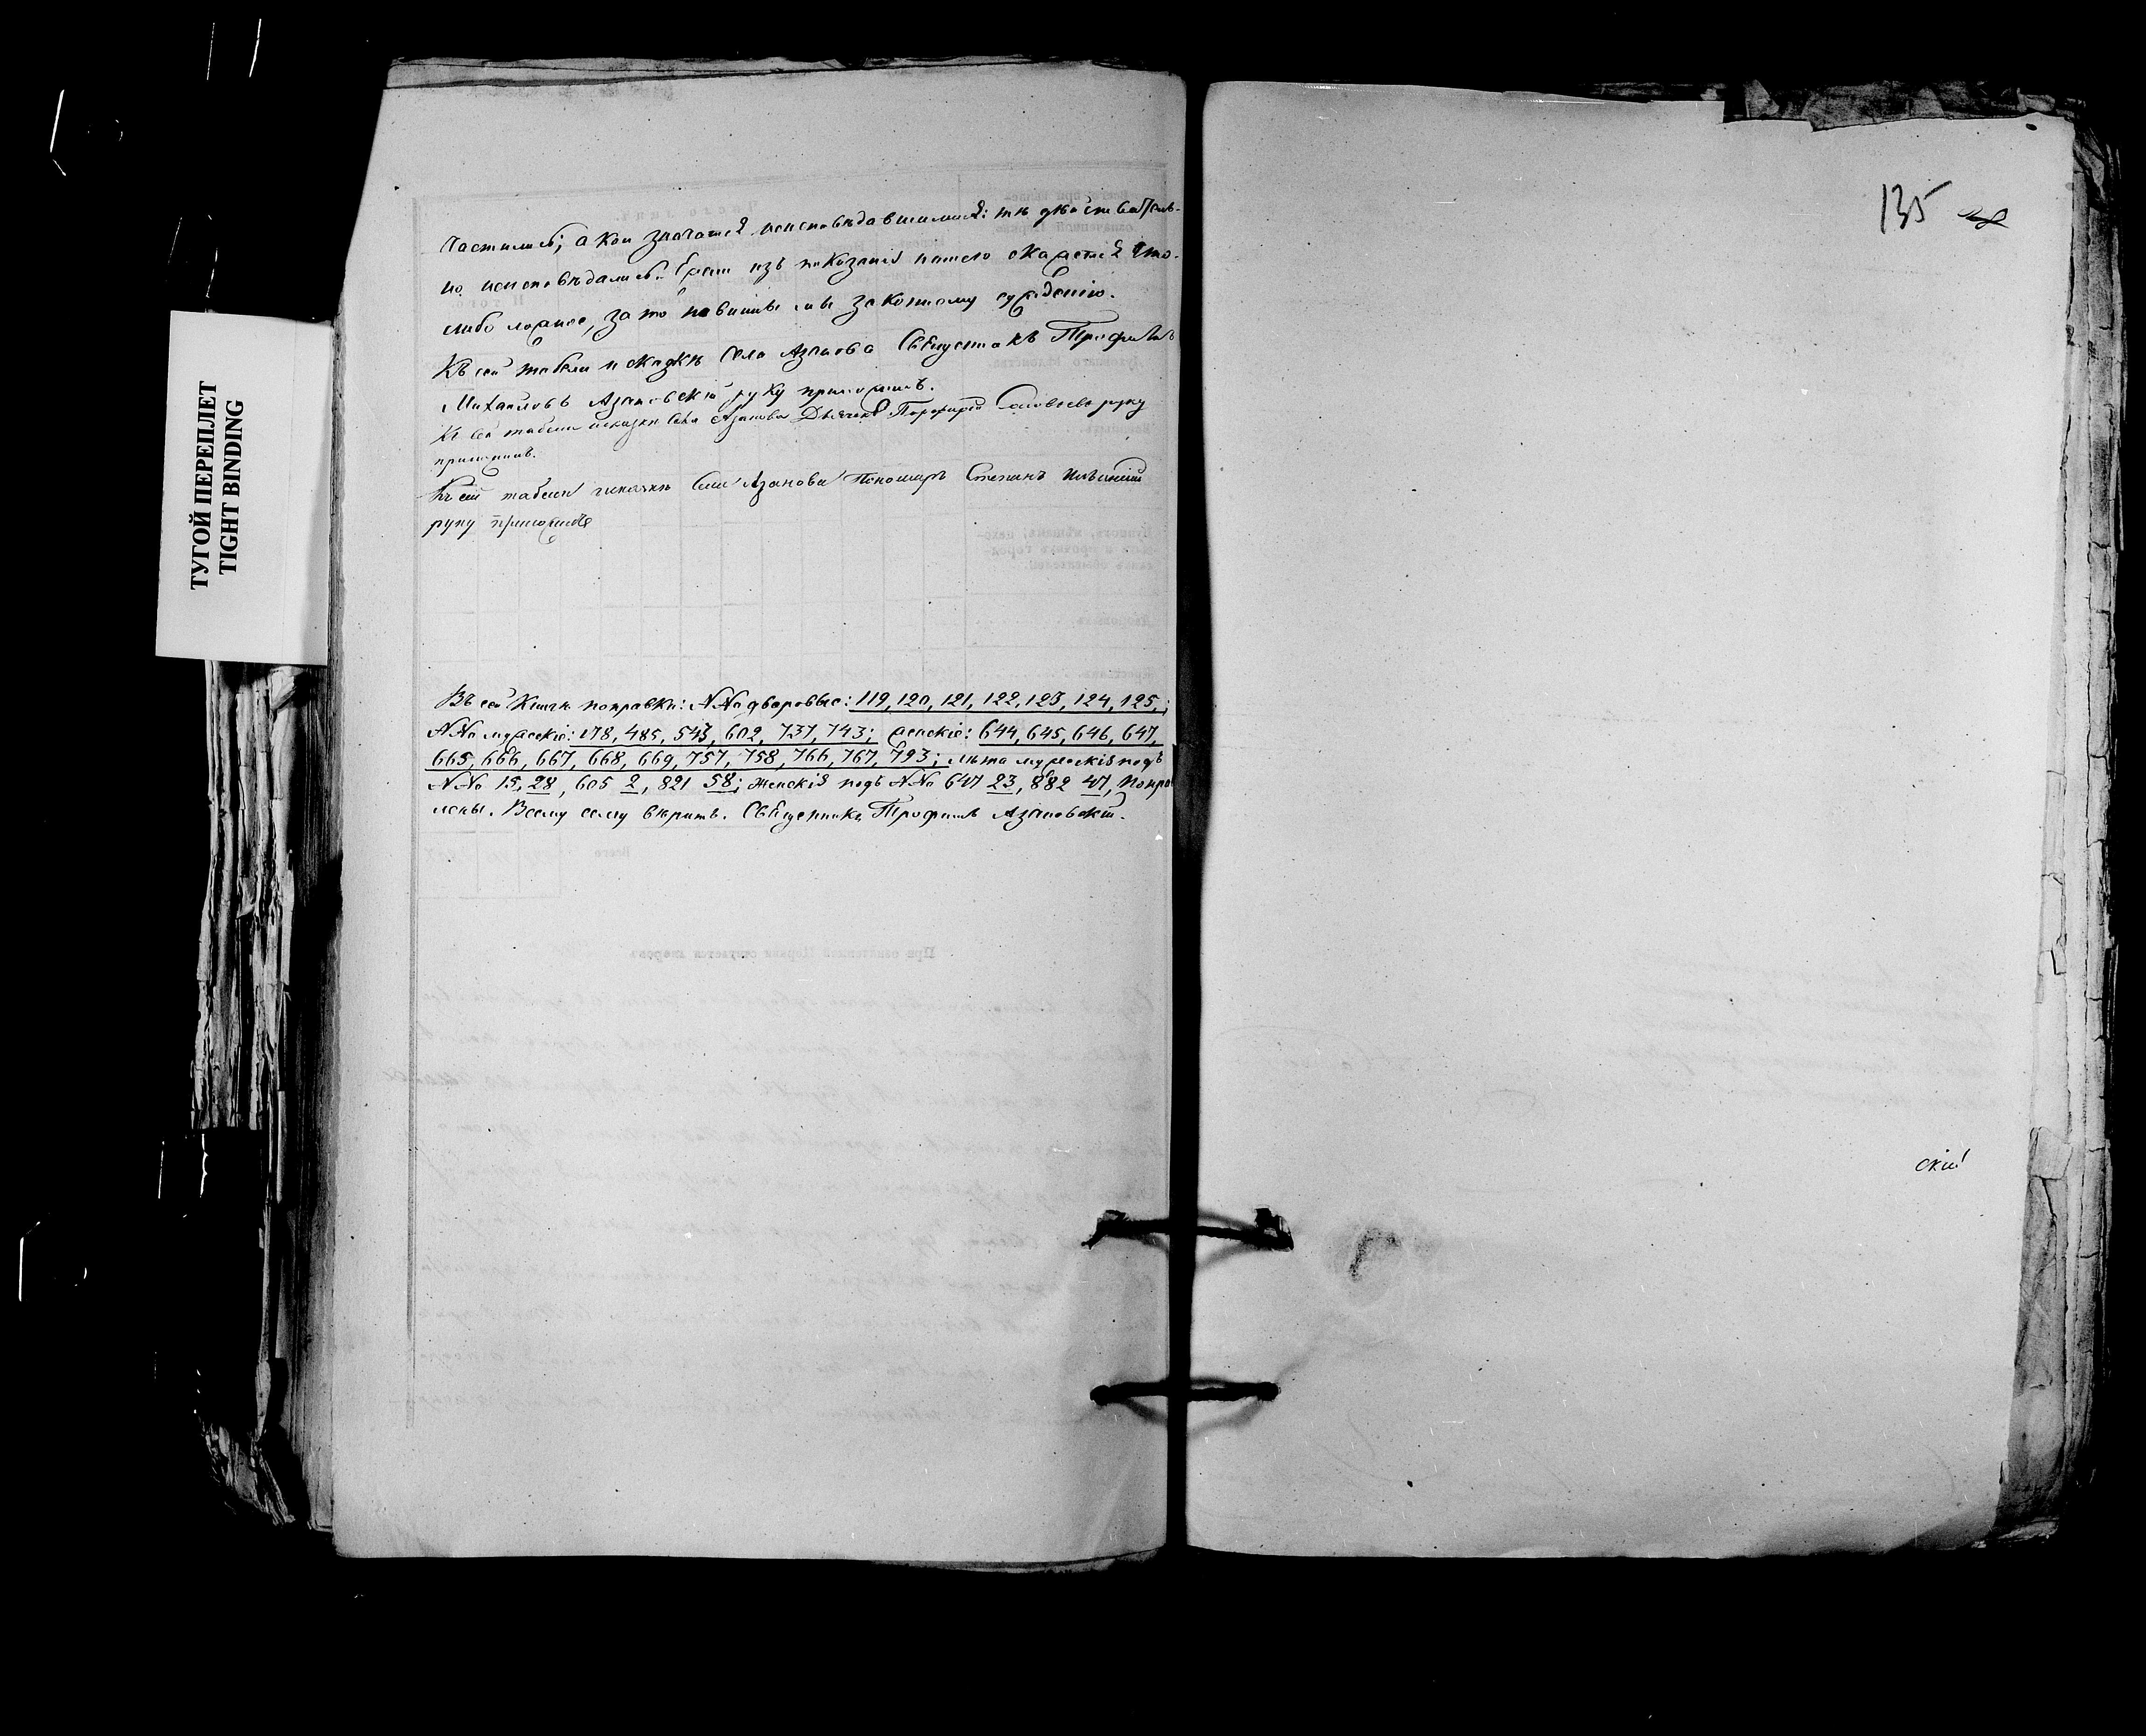 ТУГОЙ ПЕРЕПЛЕТ
TIGHT BINDING
частились; а кои значатся исповѣдавшимися: тѣ дѣйствитель-
но исповѣдались. Ежели изъ показанія нашего окажется что-
либо ложное, за то повинны мы законному сужденію.
Къ сей табели и сказкѣ Села Азанова Священникъ Трофимъ
Михайловъ Азановскій руку приложилъ.
Къ сей табели и сказкѣ Села Азанова Дьячекъ Порфирій Соловьевъ руку
приложилъ.
Къ сей табели и сказкѣ Села Азанова Пономарь Степанъ
руку приложилъ
Въ сей Книгѣ поправки: №№ дворовые: 119, 120, 121, 122, 123, 124, 125.;
№№ мужескіе: 178, 485, 543, 602, 737, 743; женскіе: 644, 645, 646, 647,
665, 666, 667, 668, 669, 757, 758, 766, 767, 793; лѣта мужескія подъ
№№ 15, 28, 605 2, 821 58; женскія подъ №№ 647 23, 882 47, попра
лены. Всему сему вѣрить. Священникъ Трофимъ Азановскій.
135
скій